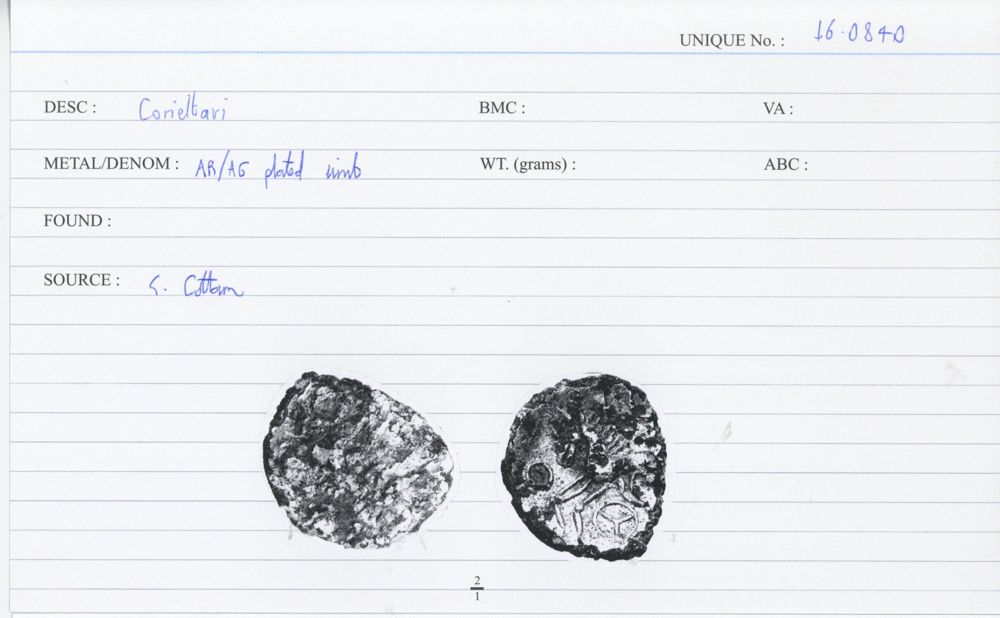 UNIQUE No. : 16.0840
DESC : Corieltavi BMC : VA :
METAL/DENOM : AR/AE plated unit WT. (grams) : ABC :
FOUND :
SOURCE : G. Cottam
2
1